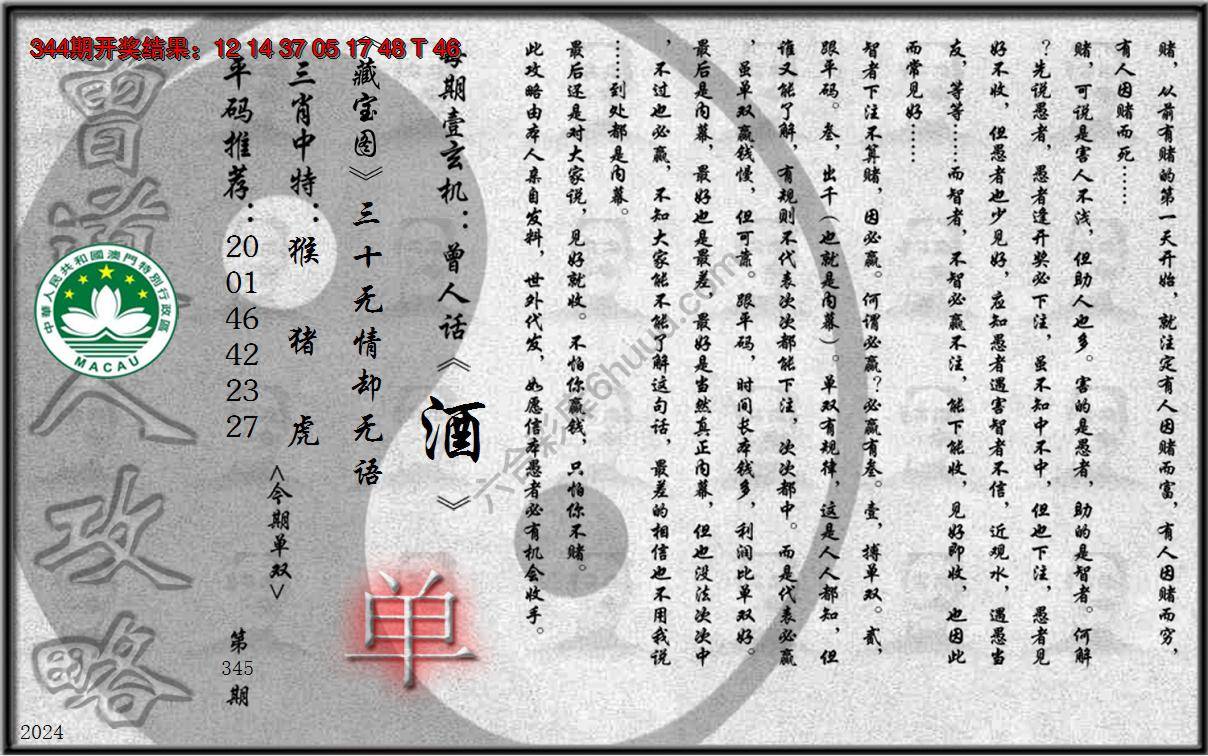 344期开奖结果：12 14 37 05 17 48 T 46
赌，从前有赌的第一天开始，就注定有人因赌而富，有人因赌而穷，
有人因赌而死……
赌，可说是害人不浅，但助人也多。害的是愚者，助的是智者。何解
？先说愚者，愚者逢开奖必下注，虽不知中不中，但也下注，愚者见
好不收，但愚者也少见好，应知愚者遇害智者不信，近观水，遇愚当
友，等等……而智者，不智必赢不注，能下能收，见好即收，也因此
而常见好……
智者下注不算赌，因必赢。何谓必赢？必赢有叁。壹，搏单双。贰，
跟平码。叁，出千（也就是内幕）。单双有规律，这是人人都知，但
谁又能了解，有规则不代表次次都能下注，次次都中。而是代表必赢
，虽单双赢钱慢，但可靠。跟平码，时间长本钱多，利润比单双好。
最后是内幕，最好也是最差，最好是当然真正内幕，但也没法次次中
，不过也必赢，不知大家能不能了解这句话，最差的相信也不用我说
……到处都是内幕。
最后还是对大家说，见好就收。不怕你赢钱，只怕你不赌。
此攻略由本人亲自发料，世外代发，如愿信本愚者必有机会收手。
每期壹玄机：曾人话《酒》
《藏宝图》三十无情却无语
单
三肖中特：猴 猪 虎
<今期单双>
平码推荐：20 01 46 42 23 27
第345期
曾道人攻略
中華人民共和國澳門特別行政區
MACAU
六合彩库6huu.com
2024